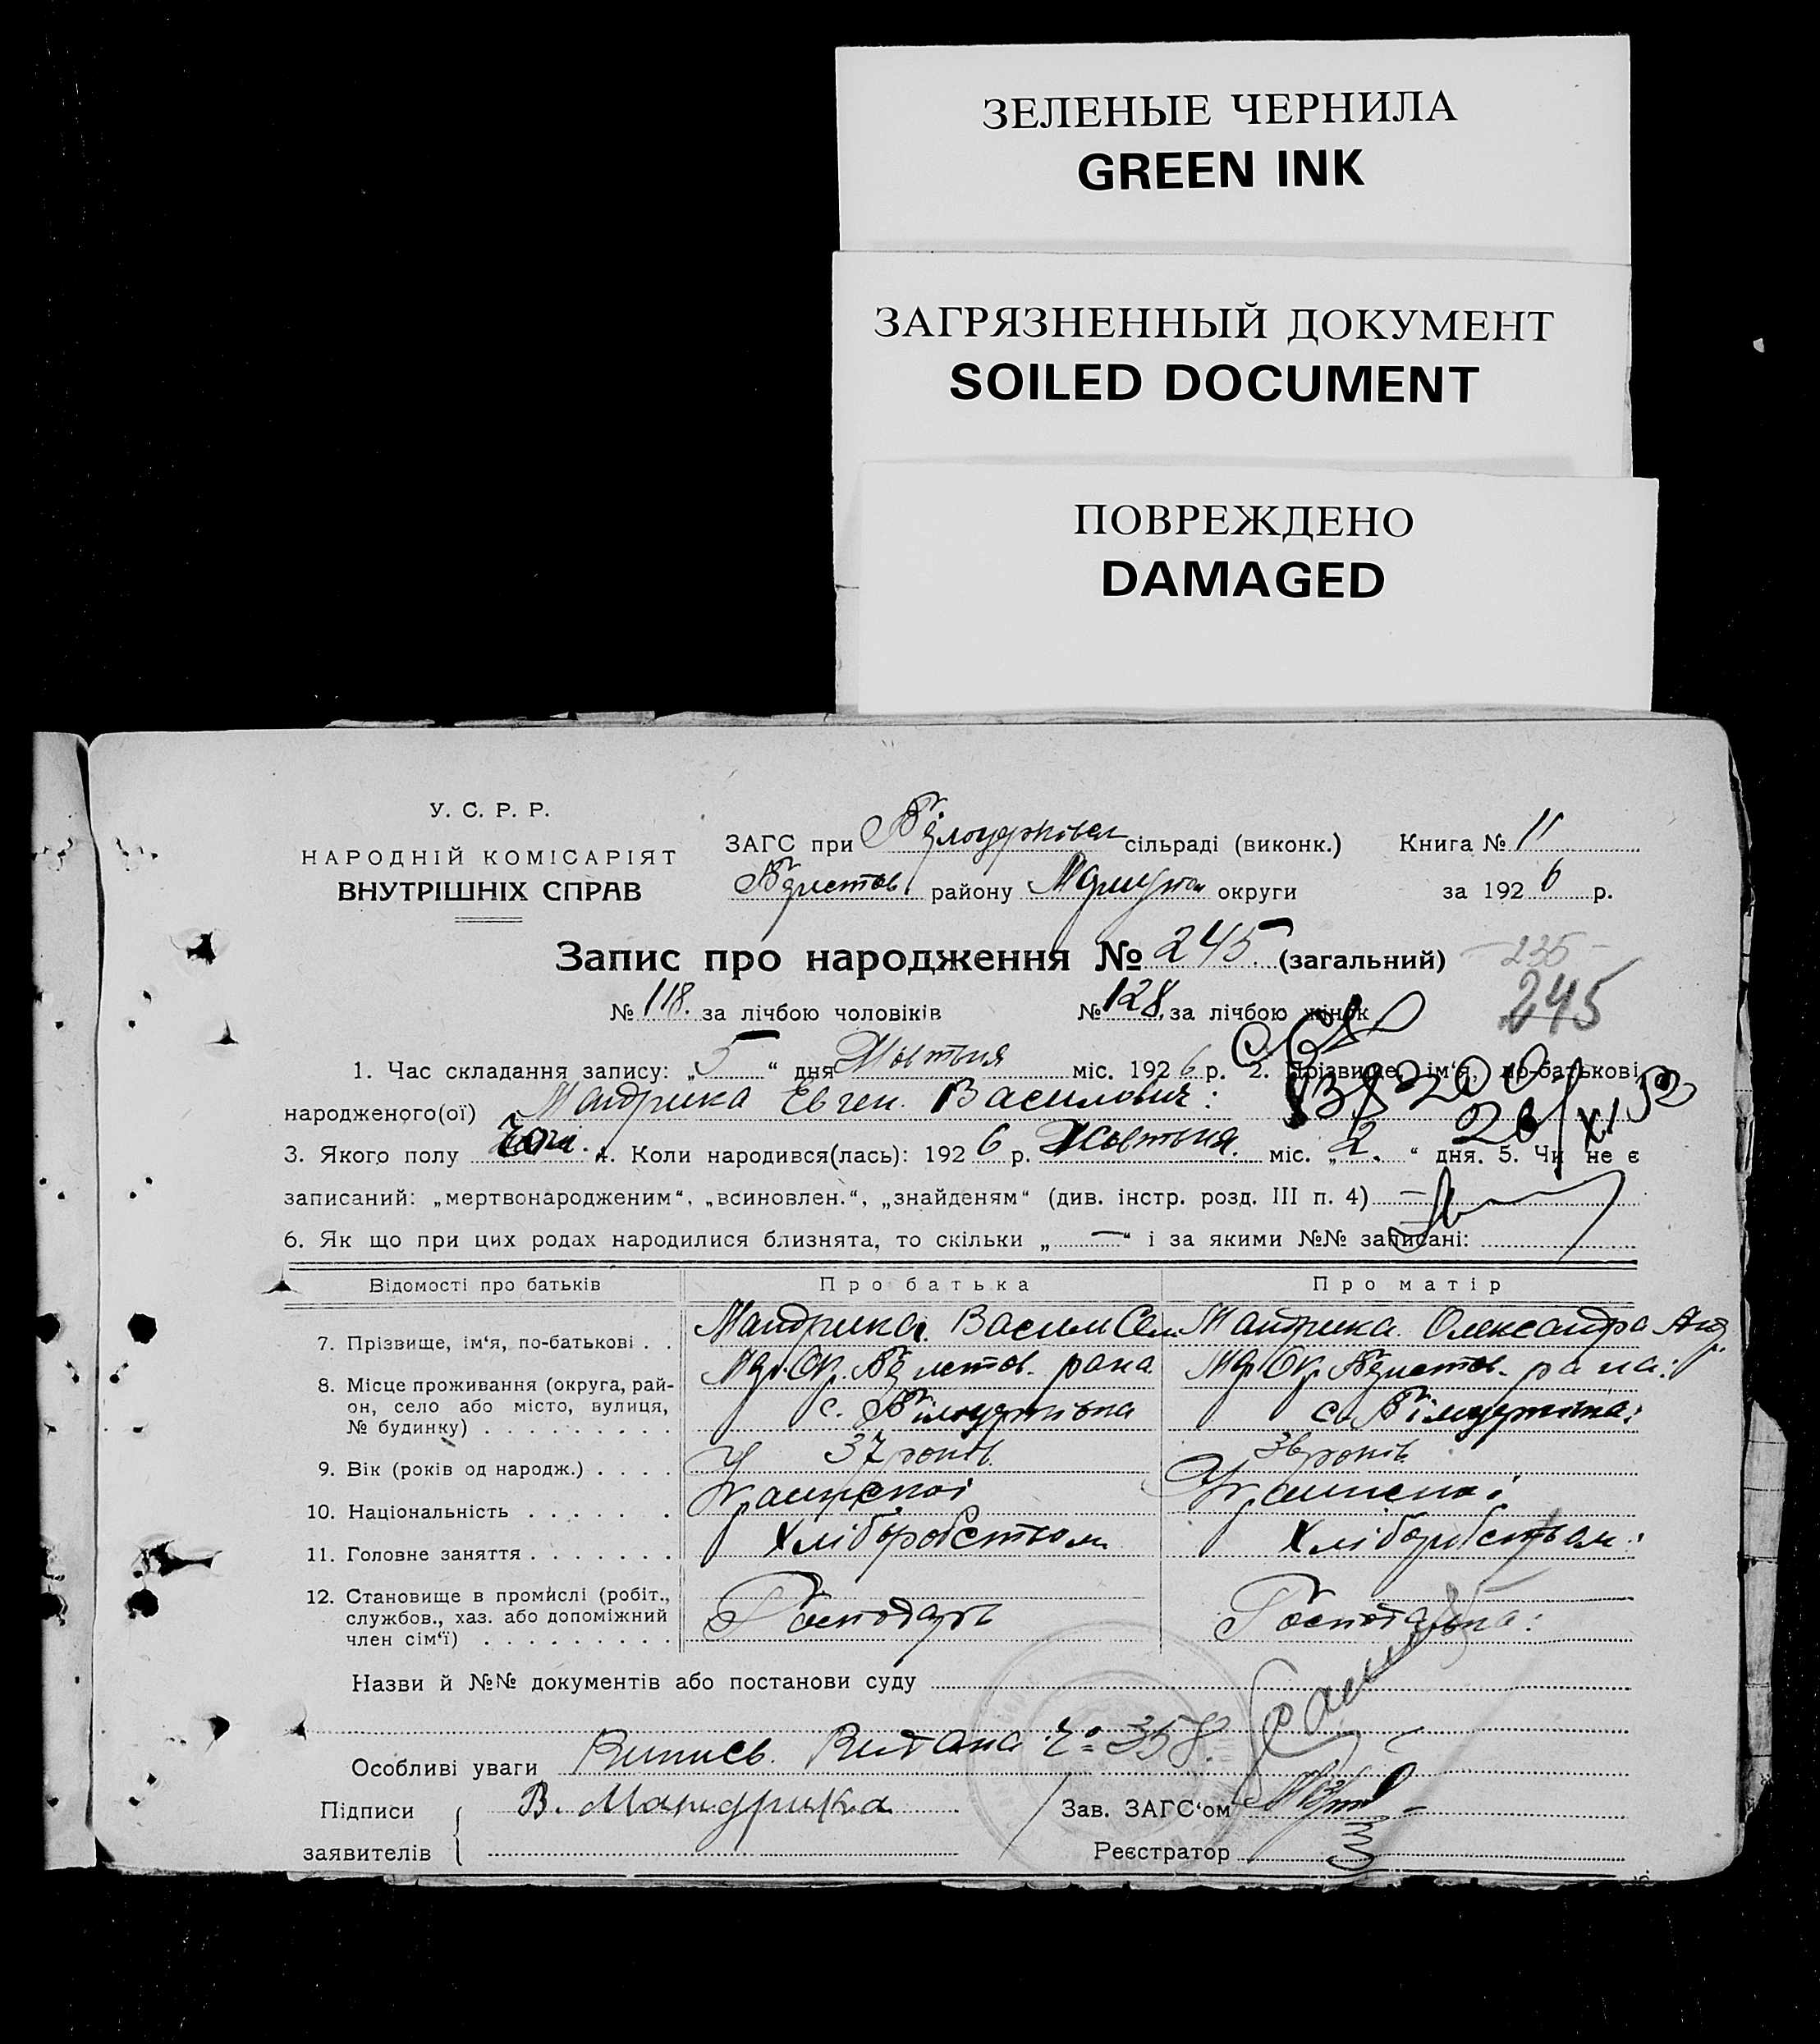 ЗЕЛЕНЫЕ ЧЕРНИЛА
GREEN INK
ЗАГРЯЗНЕННЫЙ ДОКУМЕНТ
SOILED DOCUMENT
ПОВРЕЖДЕНО
DAMAGED
У. С. Р. Р.
НАРОДНІЙ КОМІСАРІЯТ
ВНУТРІШНІХ СПРАВ
ЗАГС при сільраді (виконк.) Книга № 11
району округи за 1926 р.
Запис про народження № 245 (загальний) 235
245
№ 118. за лічбою чоловіків № 128. за лічбою жінок
1. Час складання запису: „5“ дня Жовтня міс. 1926 р. 2. Прізвище, ім‘я, по-батькові
народженого(ої) Мандрика Евген. Василович:
26/XI 52
3. Якого полу Чол. 4. Коли народився(лась): 1926 р. Жовтня. міс. „2.“ дня. 5. Чи не є
записаний: „мертвонародженим“, „всиновлен.“, „знайденям“ (див. інстр. розд. III п. 4) —
6. Як що при цих родах народилися близнята, то скільки „—“ і за якими №№ записані:
Відомості про батьків Про батька Про матір
7. Прізвище, ім‘я, по-батькові . . Мандрика. Васили Сем. Мандрика. Олександра Анд.
8. Місце проживання (округа, рай-
он, село або місто, вулиця,
№ будинку) . . . . . . . . . с. Білоцерківка с. Білоцерківка:
9. Вік (років од народж.) . . . . 37 років. 36 років.
10. Національність . . . . . . . Української Української
11. Головне заняття . . . . . . . Хліборобством Хліборобством:
12. Становище в промислі (робіт.,
службов., хаз. або допоміжний
член сім‘ї) . . . . . . . . . Господарь Господарька:
Назви й №№ документів або постанови суду
Особливі уваги Випись. Видана № 358.
Підписи В. Мандрика Зав. ЗАГС‘ом
заявителів Реєстратор